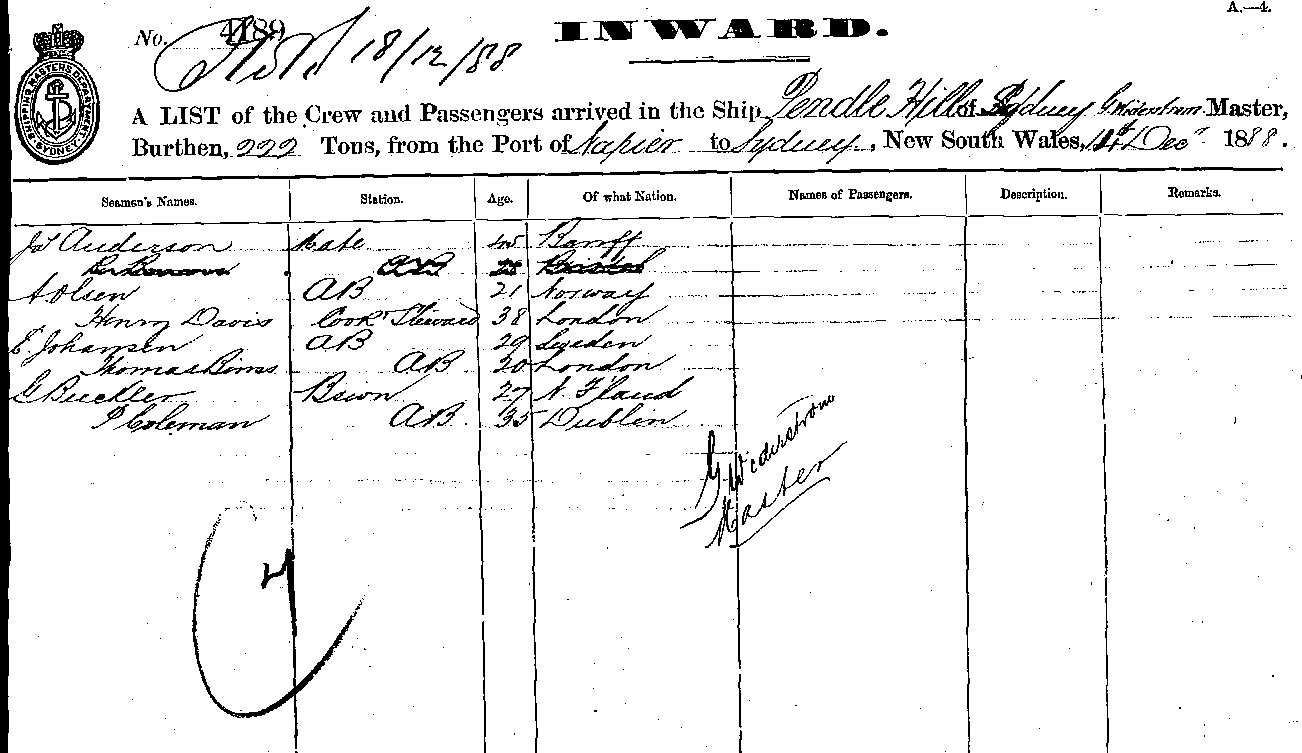 A.—4.
No. 4189
18/12/88
INWARD.
SHIPPING MASTERS DEPARTMENT SYDNEY
A LIST of the Crew and Passengers arrived in the Ship Pendle Hill of Sydney G Widerstrom Master,
Burthen, 222 Tons, from the Port of Napier to Sydney, New South Wales, Decr 1888.
Seamen's Names. Station. Age. Of what Nation. Names of Passengers. Description. Remarks.
Jas Anderson Mate 45 Banff
AB
A Olsen AB 21 Norway
Henry Davis Cook Steward 38 London
E Johansen AB 29 Sweden
Thomas Binns AB 20 London
G Buckler Bswn 27 N. F'land
P Coleman AB 35 Dublin
G Widerstrom
Master